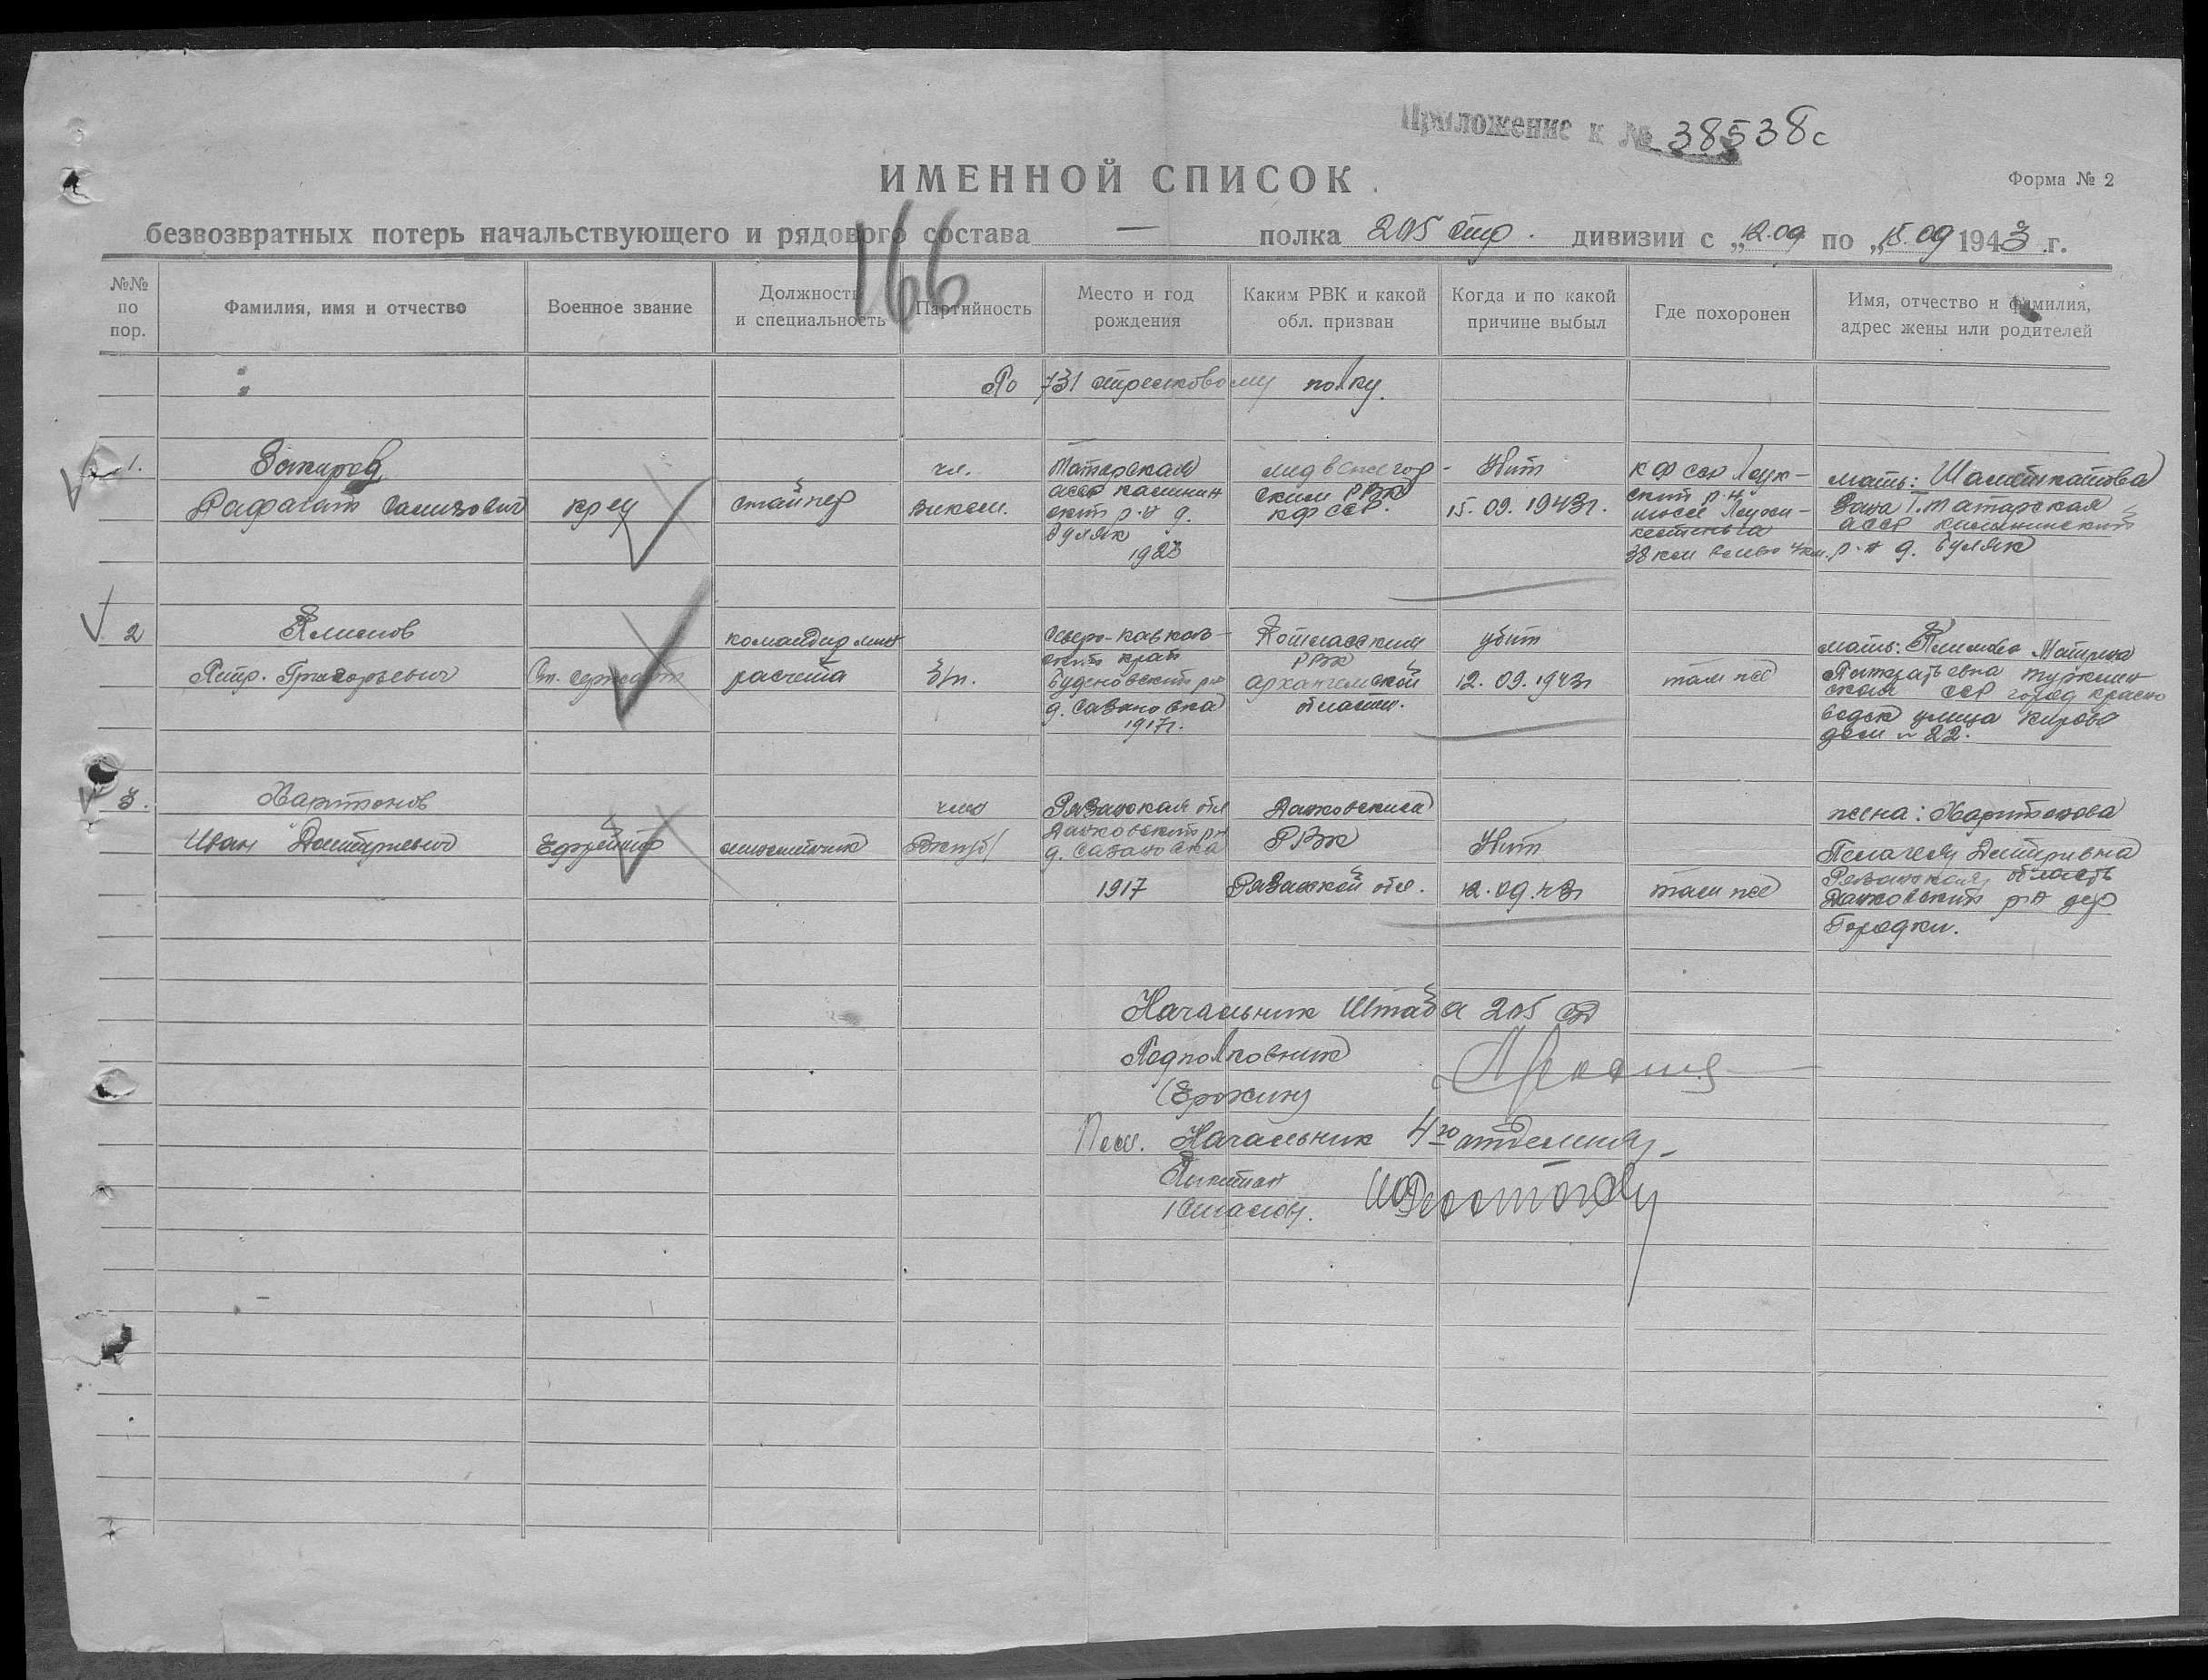 Приложение к № 38538с
ИМЕННОЙ СПИСОК
Форма № 2
безвозвратных потерь начальствующего и рядового состава — полка 205 стр. дивизии с „12.09 по „15.09 1943 г.
166
№№ по пор.
Фамилия, имя и отчество
Военное звание
Должность и специальность
Партийность
Место и год рождения
Каким РВК и какой обл. призван
Когда и по какой причине выбыл
Где похоронен
Имя, отчество и фамилия, адрес жены или родителей
По 731 стрелковому полку.
1.
Закиров
Рафагат
кр-ец
снайпер
чл.
влксм.
Татарская
АССР Калинин
ский р-н д.
Буляк
Медвежегор-
ским РВК
КФ ССР.
Убит
15.09.1943г.
КФ ССР Лоух-
ский р-н
шоссе Лоухи-
Кестеньга
38 км влево 4 км.
мать:
Татарская
АССР Калининский
р-н д. Буляк
2
Климов
Петр. Григорьевич
Ст. сержант
командир мин
расчета
б/п.
Северо-Кавказ-
ский край
Буденовский р-н
1917г.
Котласским
РВК
Архангельской
области.
убит
12.09.1943г
там же
мать: Климова Матрена
Туркмен
ская ССР город Красно
водск улица Кирова
дом № 22.
3.
Харитонов
Иван Дмитриевич
Ефрейтор
минометчик
член
ВКП(б)
Рязанская обл
Данковский р-н
1917
Данковским
РВК
Рязанской обл.
Убит
12.09.43г
там же
жена: Харитонова
Пелагея Дмитривна
Рязанская область
Данковский р-н дер
Городки.
Начальник Штаба 205 СД
Подполковник
(Ерохин)
Пом. Начальник 4го отделения
Капитан